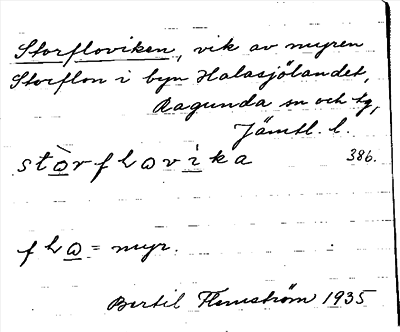 Storfloviken, vik av myren
Storflon i byn Halasjölandet,
Ragunda sn och tg,
Jämtl. l.
stò̲rflωvi̲ka 386.
flω̲ = myr.
Bertil Flemström 1935